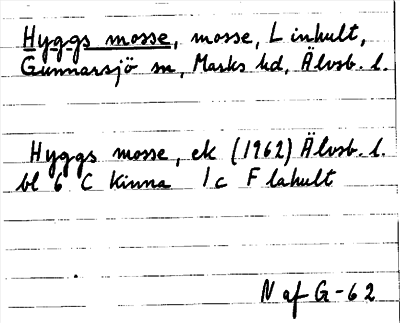 Hyggs mosse, mosse, Linhult,
Gunnarsjö sn, Marks hd, Älvsb. l.
Hyggs mosse, ek (1962) Älvsb. l.
bl 6 C Kinna 1c Flahult
N af G-62